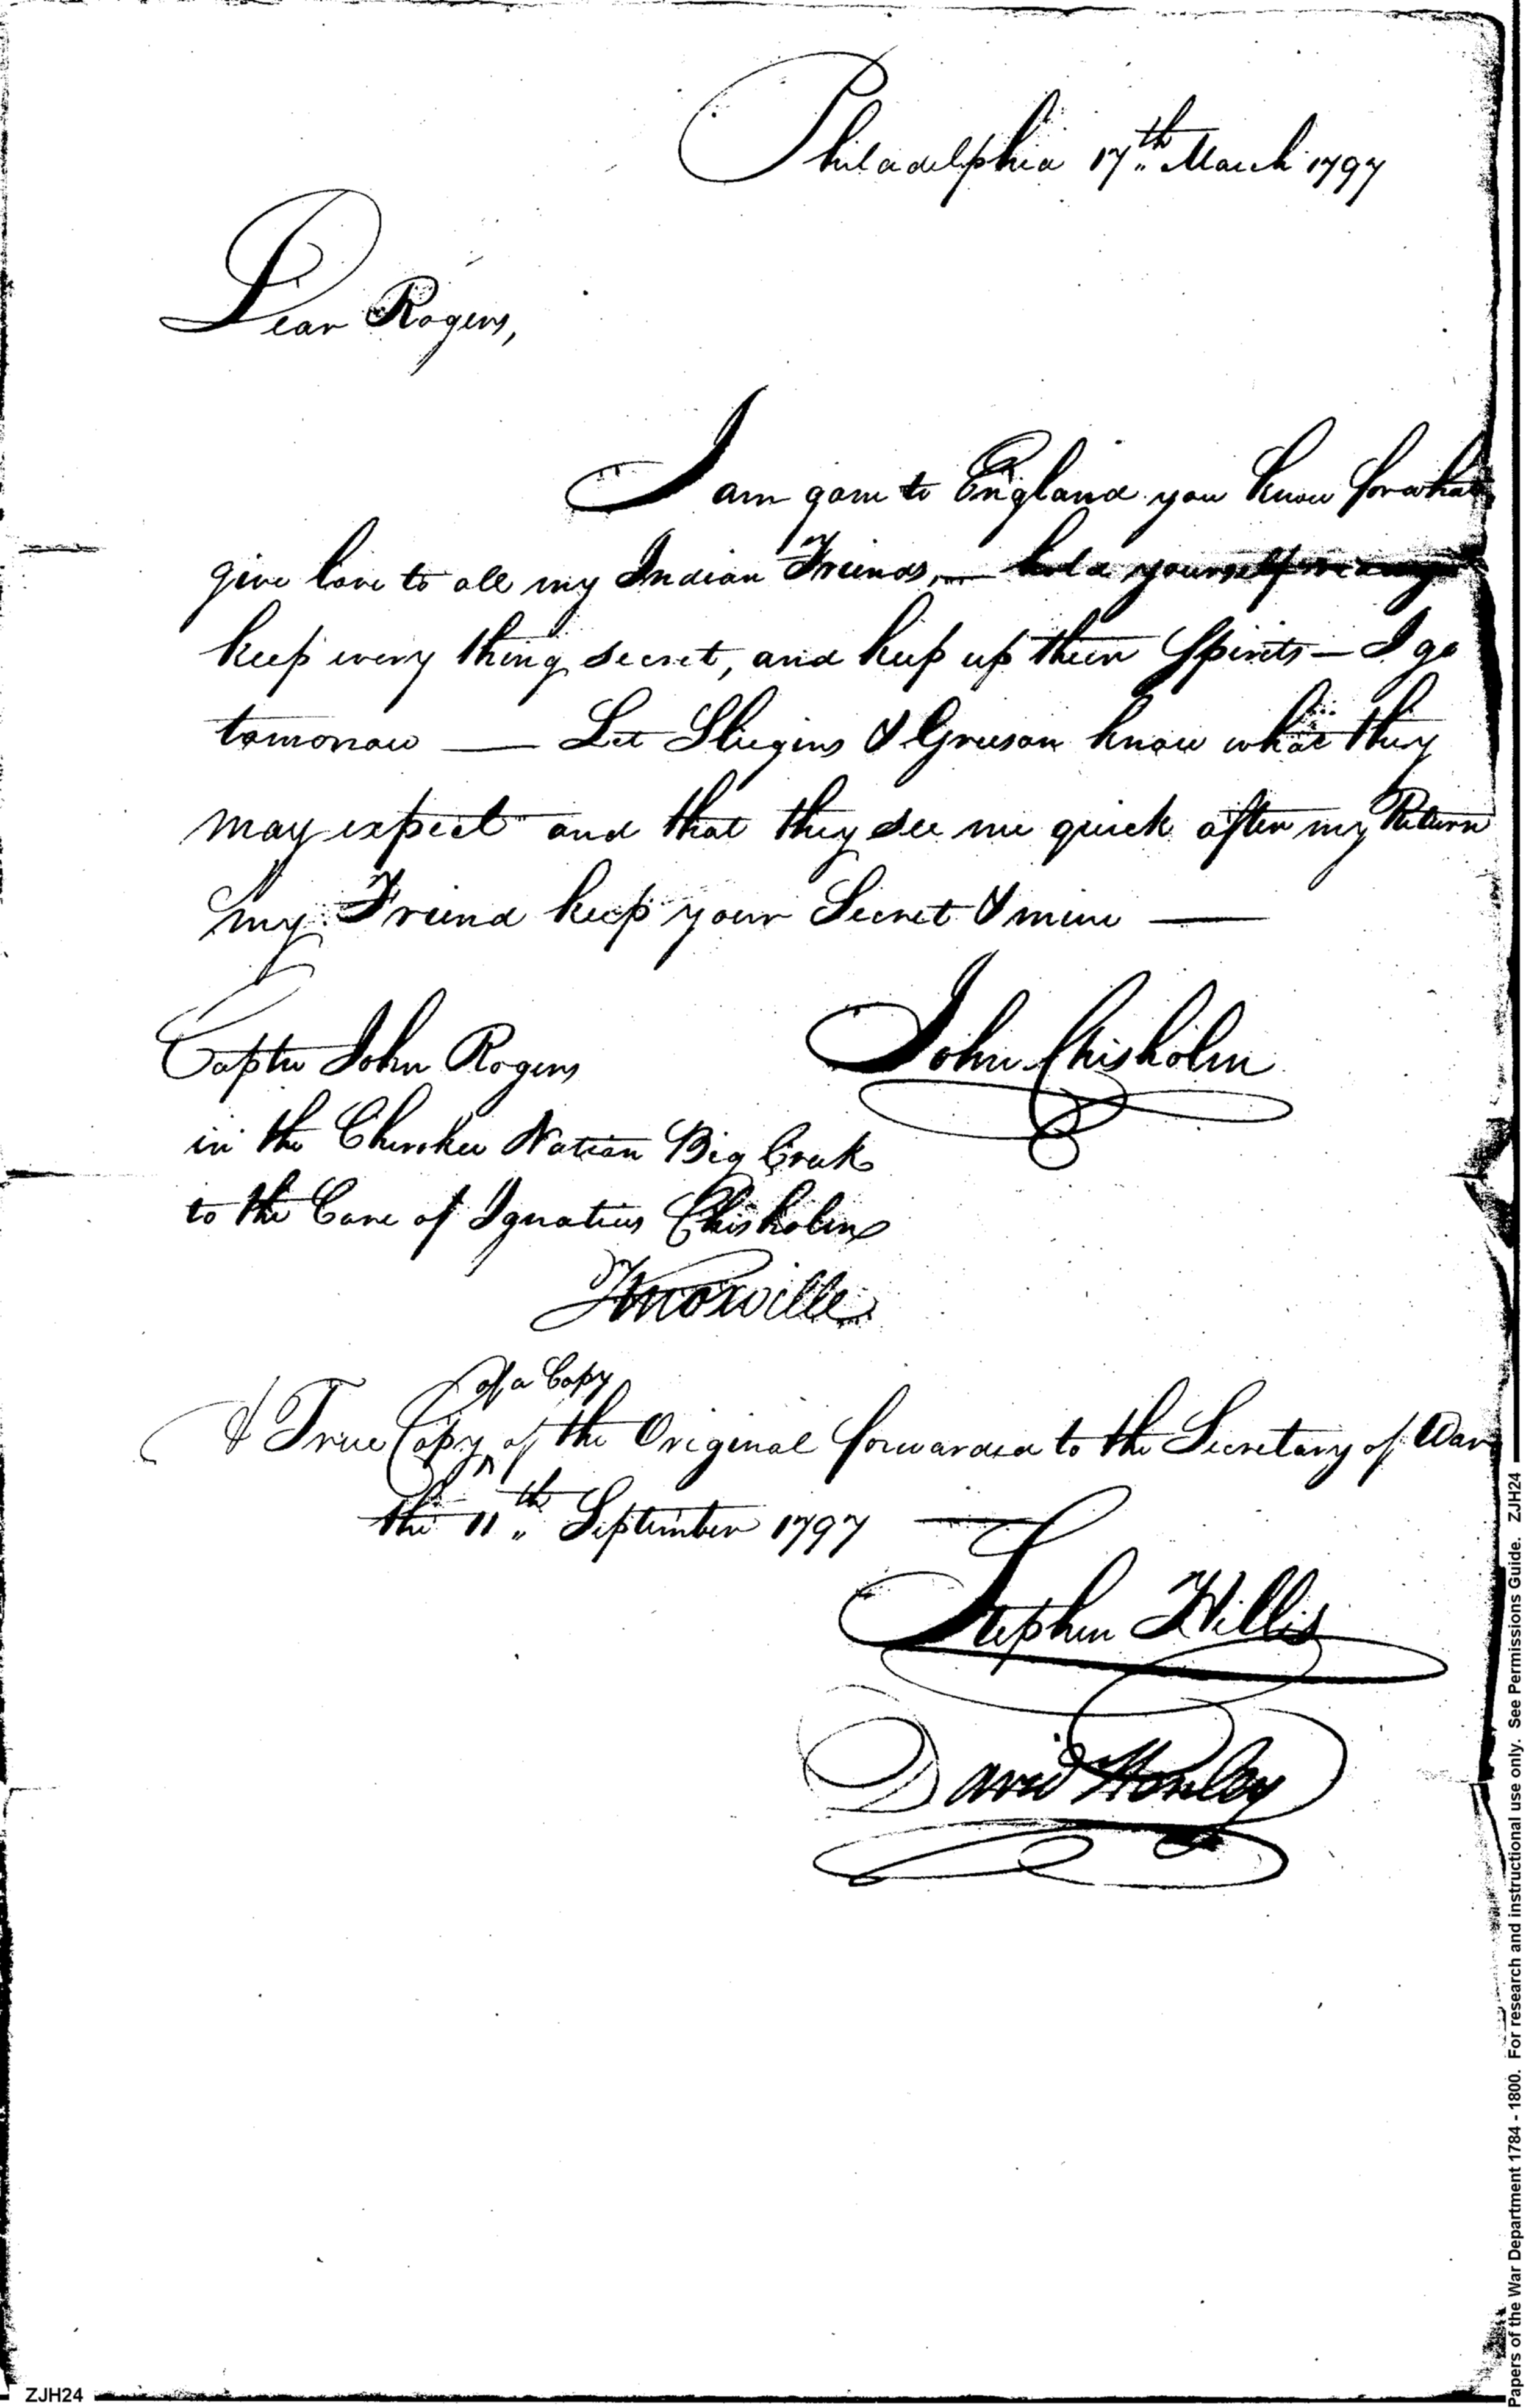 Philadelphia 17th March 1797
Dear Rogers,
I am gone to England you know for what
give love to all my Indian Friends, — hold yourself
keep every thing secret, and keep up their Spirits — I go
tomorrow — Let & know what they
may expect and that they see me quick after my Return
my Friend keep your Secret & mine —
John Chisholm
Captn John Rogers
in the Cherokee Nation Big Creek
to the Care of Ignatius Chisholm
Knoxville
of a Copy
A True Copy ^ of the Original forwarded to the Secretary of War
the 11th September 1797 —
Stephen Hillis
David Henley
Papers of the War Department 1784 - 1800. For research and instructional use only. See Permissions Guide. ZJH24
ZJH24